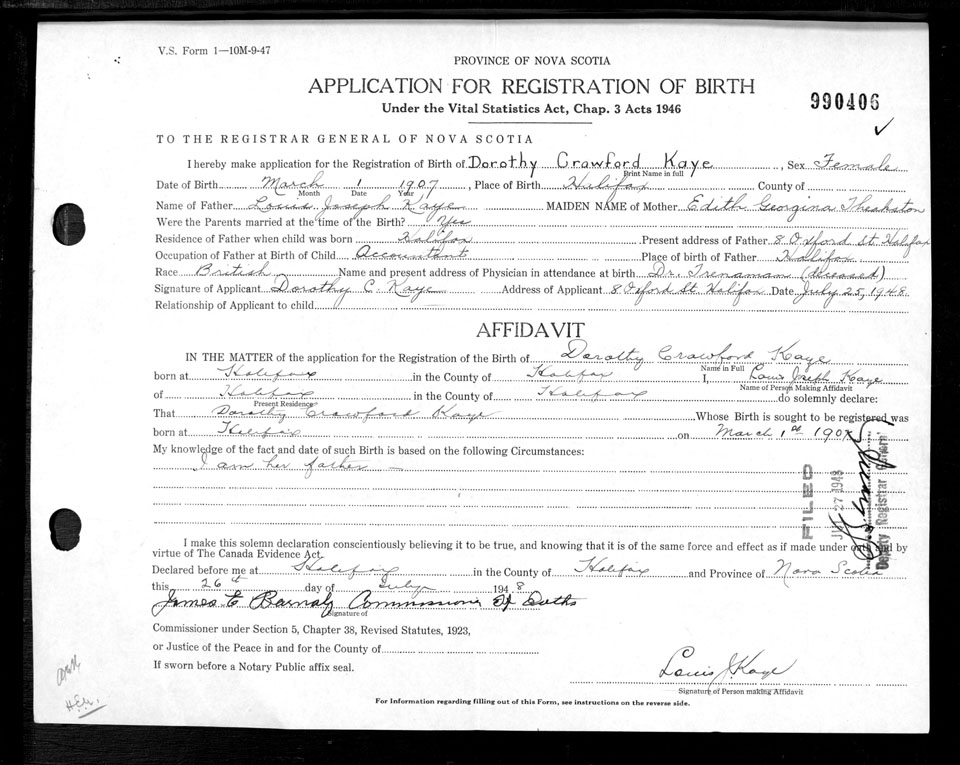 V.S. Form 1—10M-9-47
PROVINCE OF NOVA SCOTIA
APPLICATION FOR REGISTRATION OF BIRTH
Under the Vital Statistics Act, Chap. 3 Acts 1946
990406
TO THE REGISTRAR GENERAL OF NOVA SCOTIA
I hereby make application for the Registration of Birth of Dorothy Crawford Kaye, Sex Female
Print Name in full
Date of Birth March 1 1907, Place of Birth Halifax County of
Month Date Year
Name of Father Louis Joseph Kaye MAIDEN NAME of Mother Edith Georgina Theakston
Were the Parents married at the time of the Birth? Yes
Residence of Father when child was born Halifax Present address of Father 8 Oxford St Halifax
Occupation of Father at Birth of Child Accountant Place of birth of Father Halifax
Race British Name and present address of Physician in attendance at birth Dr. Trenaman (deceased)
Signature of Applicant Dorothy C Kaye Address of Applicant 8 Oxford St Halifax Date July 25, 1948
Relationship of Applicant to child
AFFIDAVIT
IN THE MATTER of the application for the Registration of the Birth of Dorothy Crawford Kaye
Name in Full
born at Halifax in the County of Halifax I, Louis Joseph Kaye
Name of Person Making Affidavit
of Halifax in the County of Halifax do solemnly declare:
Present Residence
That Dorothy Crawford Kaye Whose Birth is sought to be registered was
born at Halifax on March 1st 1907
My knowledge of the fact and date of such Birth is based on the following Circumstances:
I am her father —
FILED
27 1948
Deputy Registrar General
I make this solemn declaration conscientiously believing it to be true, and knowing that it is of the same force and effect as if made under oath and by
virtue of The Canada Evidence Act.
Declared before me at Halifax in the County of Halifax and Province of Nova Scotia
this 26th day of July 1948
James E Barnaby Commissioner of Oaths
Signature of
Commissioner under Section 5, Chapter 38, Revised Statutes, 1923,
or Justice of the Peace in and for the County of
If sworn before a Notary Public affix seal.
Louis J. Kaye
Signature of Person making Affidavit
For Information regarding filling out of this Form, see instructions on the reverse side.